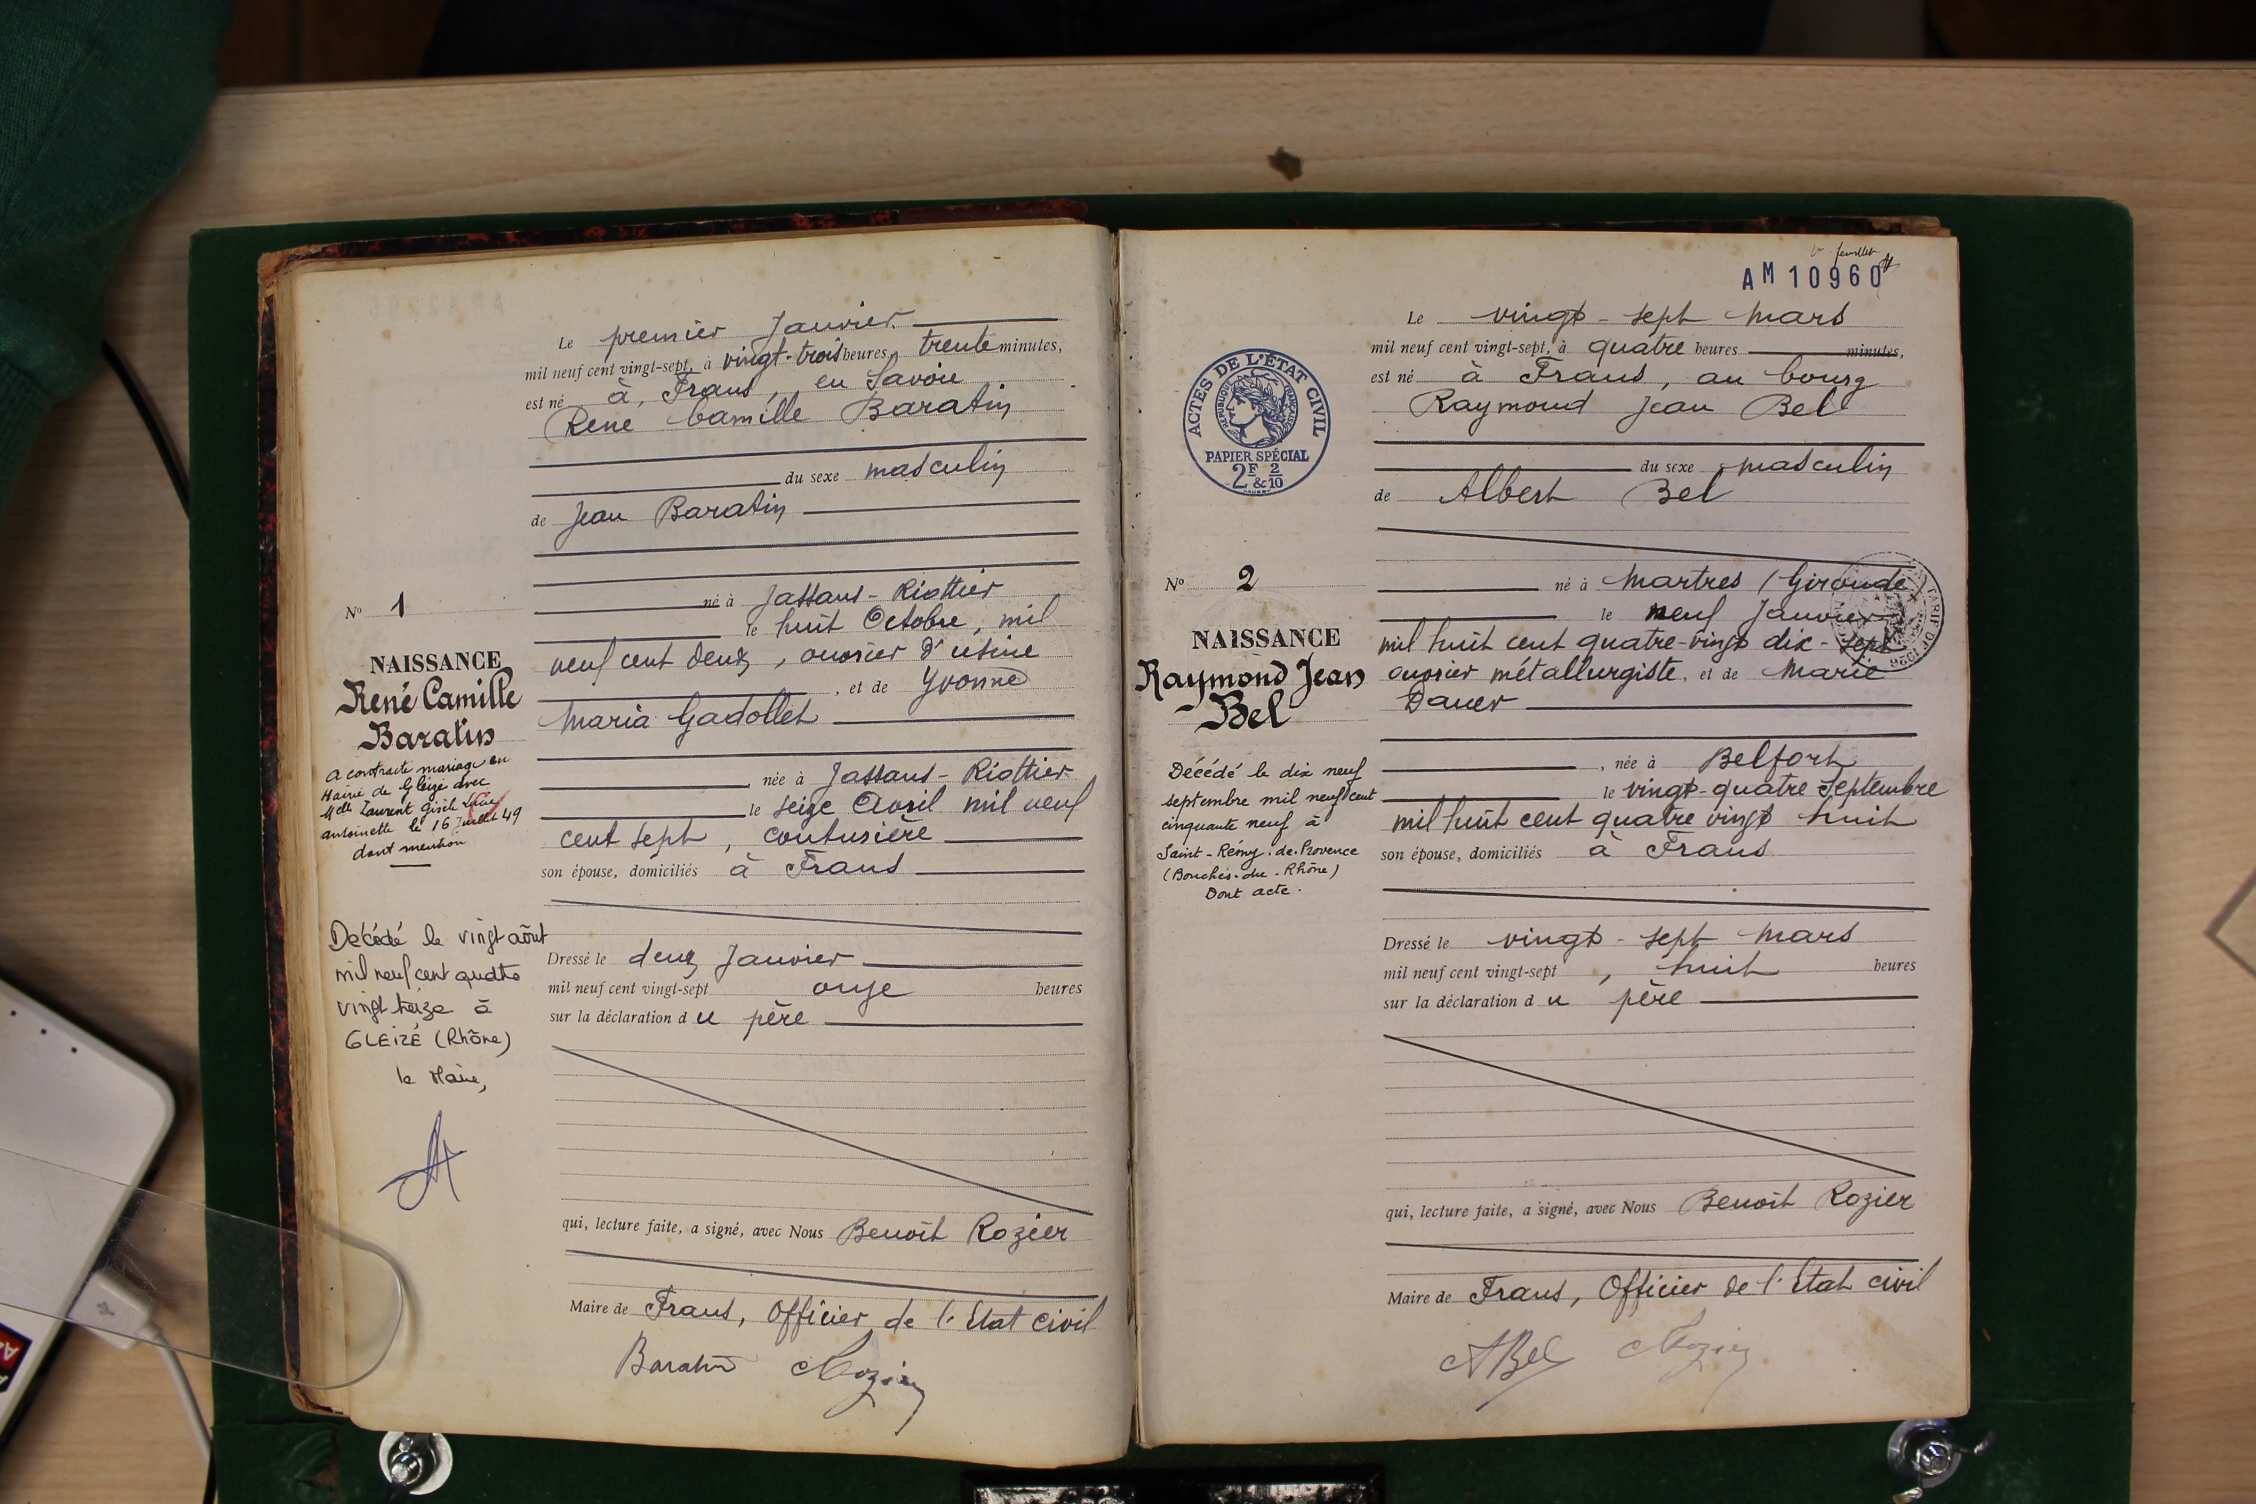 Le premier Janvier
mil neuf cent vingt-sept, à vingt-trois heures trente minutes,
est né à, Frans, en Savoie
René Camille Baratin
du sexe masculin
de Jean Baratin
né à Jassans-Riottier
le huit Octobre, mil
neuf cent deux, ouvrier d'usine
, et de Yvonne
Maria Gadollet
, née à Jassans-Riottier
le seize Avril mil neuf
cent sept, couturière
son épouse, domiciliés à Frans
Dressé le deux Janvier
mil neuf cent vingt-sept onze heures
sur la déclaration du père
qui, lecture faite, a signé, avec Nous Benoît Rozier
Maire de Frans, Officier de l'Etat civil
Baratin Rozier
N° 1
NAISSANCE
René Camille
Baratin
a contracté mariage en
Mairie de Gleizé avec
Melle Laurent Gisèle
antoinette le 16 Juillet 49
dont mention
Décédé le vingt août
mil neuf cent quatre
vingt treize à
GLEIZÉ (Rhône)
le Maire,
feuillet
AM 10960
Le vingt-sept Mars
mil neuf cent vingt-sept, à quatre heures minutes,
est né à Frans, au bourg
Raymond Jean Bel
du sexe masculin
de Albert Bel
né à Martres (Gironde)
le neuf Janvier
mil huit cent quatre-vingt dix-sept
ouvrier métallurgiste, et de Marie
Dauer
, née à Belfort
le vingt-quatre Septembre
mil huit cent quatre vingt huit
son épouse, domiciliés à Frans
Dressé le vingt-sept Mars
mil neuf cent vingt-sept, huit heures
sur la déclaration du père
qui, lecture faite, a signé, avec Nous Benoît Rozier
Maire de Frans, Officier de l'Etat civil
ABel Rozier
ACTES DE L'ÉTAT CIVIL
RÉPUBLIQUE FRANÇAISE
PAPIER SPÉCIAL
2F & 2/10
N° 2
NAISSANCE
Raymond Jean
Bel
Décédé le dix neuf
septembre mil neuf cent
cinquante neuf à
Saint-Rémy-de-Provence
(Bouches-du-Rhône)
Dont acte.
TARIF DE 1926